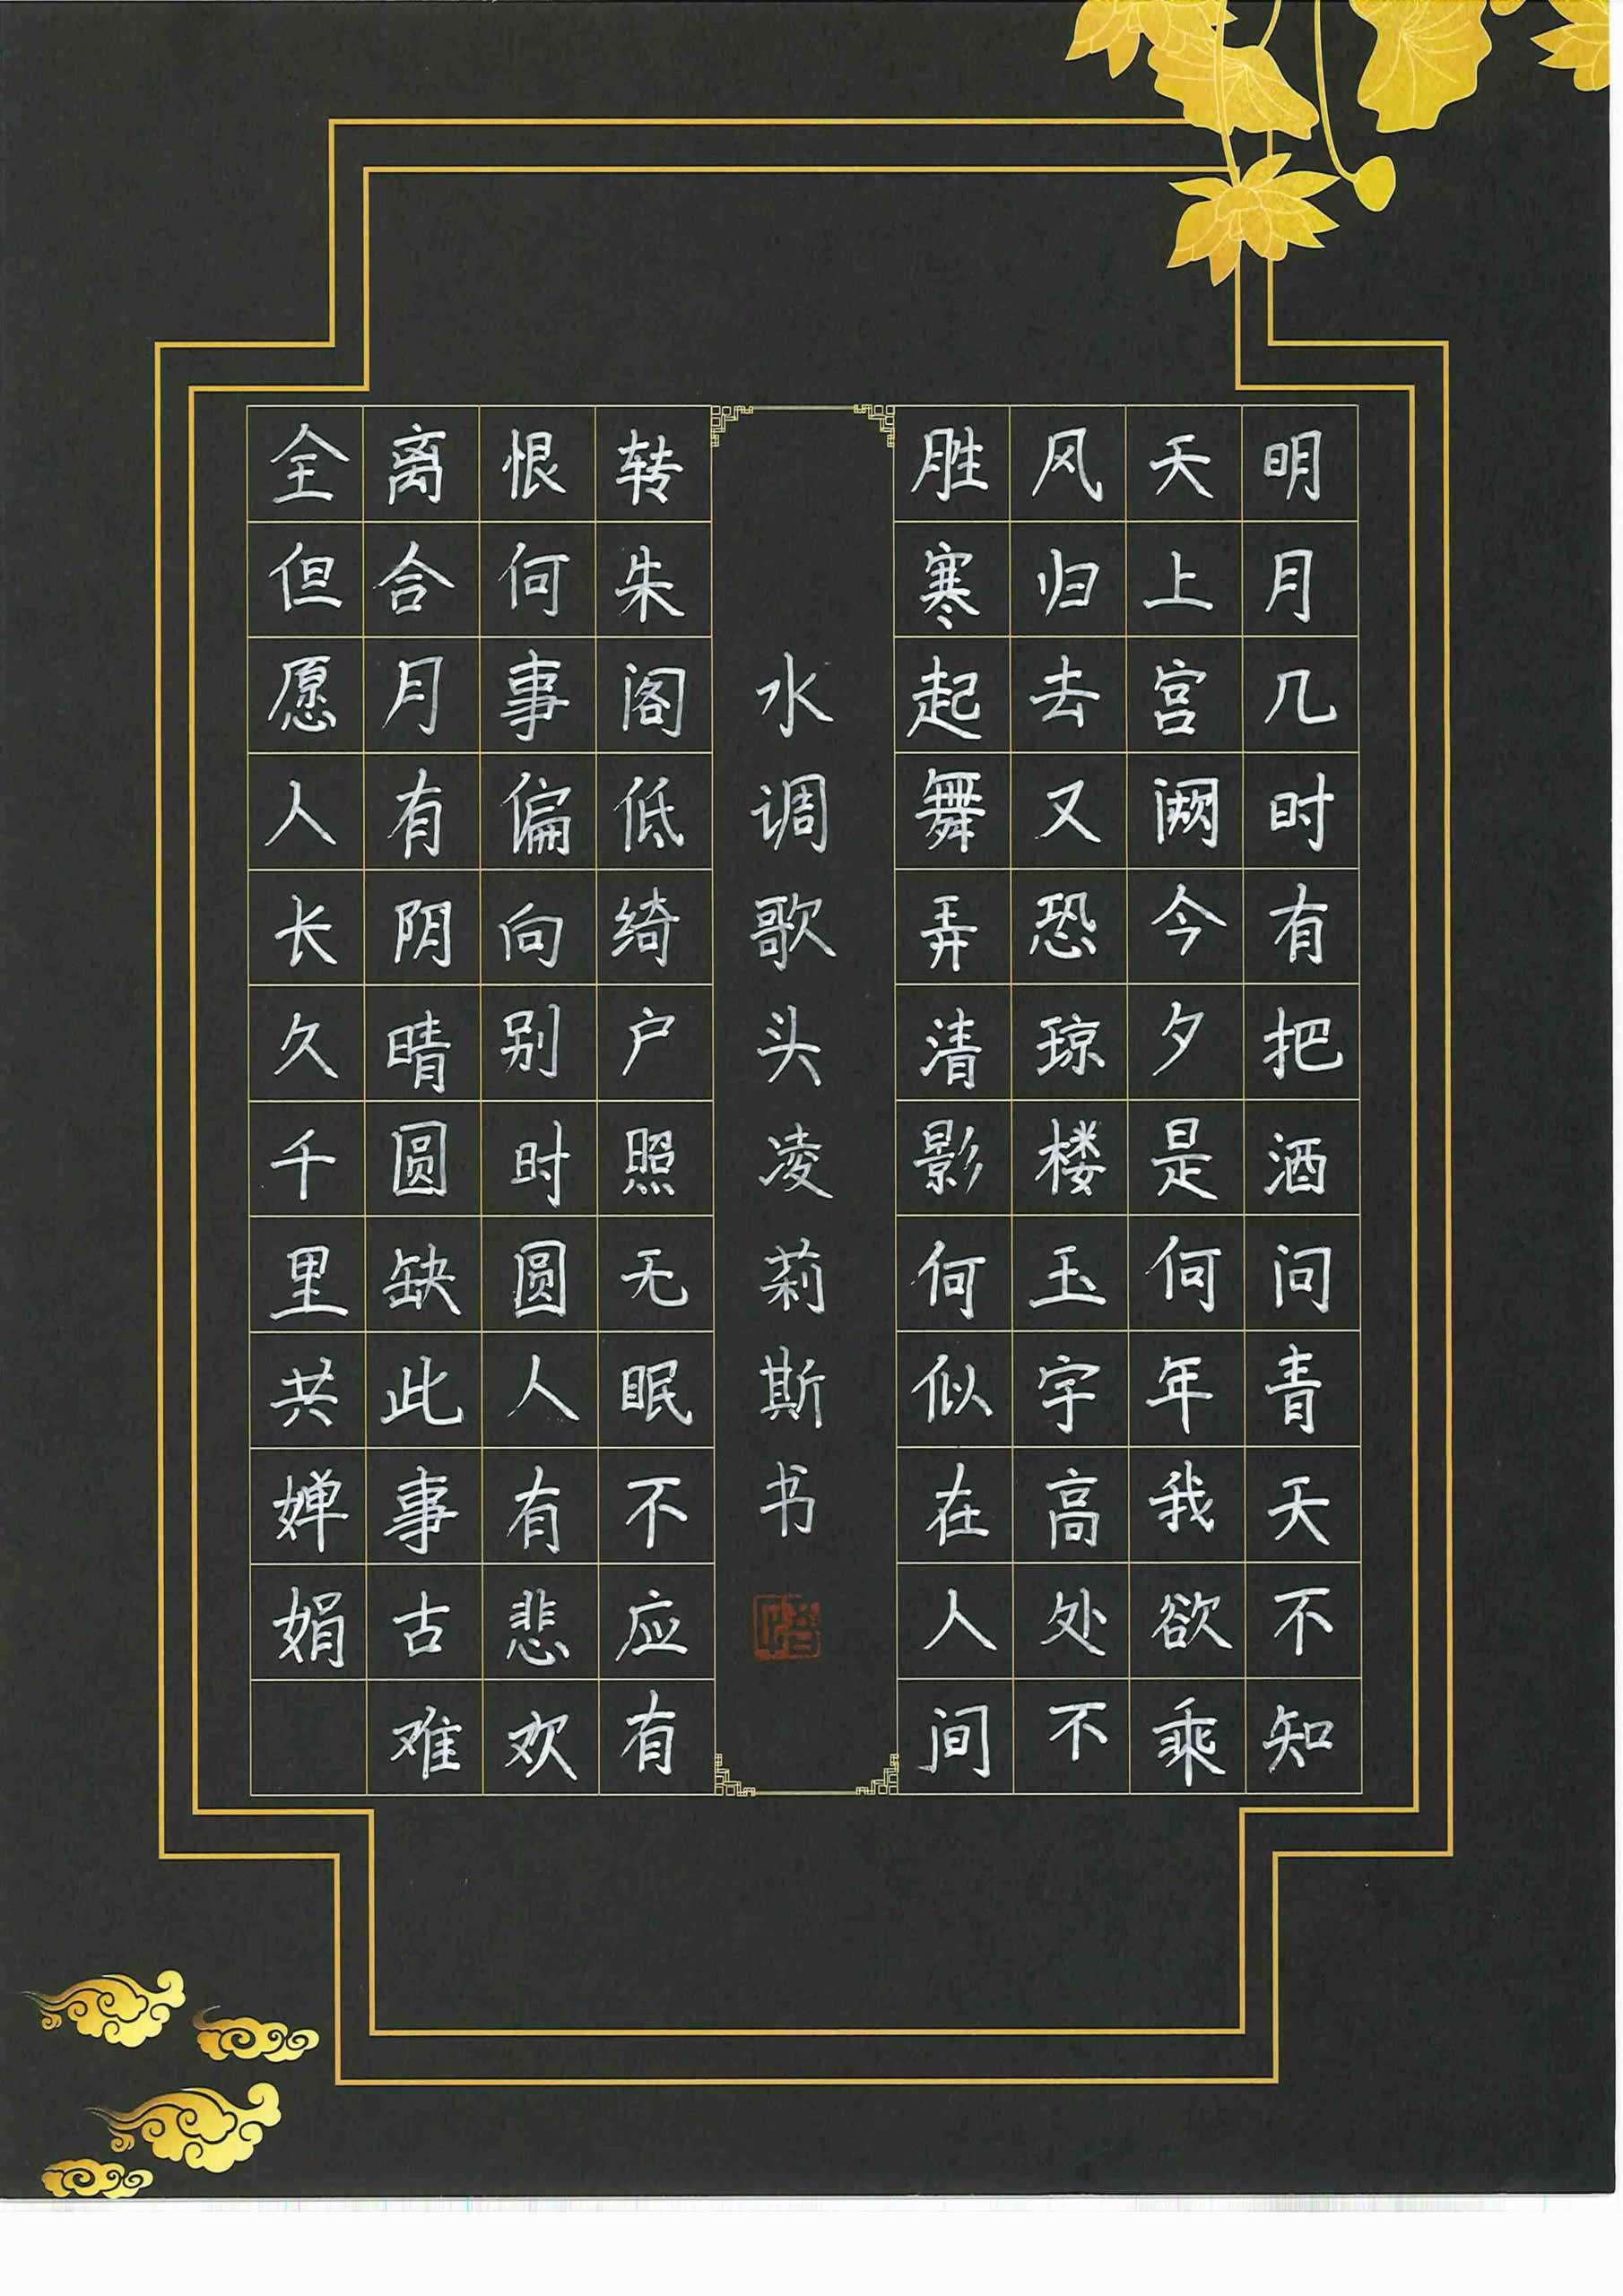 明月几时有把酒问青天不知
天上宫阙今夕是何年我欲乘
风归去又恐琼楼玉宇高处不
胜寒起舞弄清影何似在人间
水调歌头凌莉斯书
转朱阁低绮户照无眠不应有
恨何事偏向别时圆人有悲欢
离合月有阴晴圆缺此事古难
全但愿人长久千里共婵娟